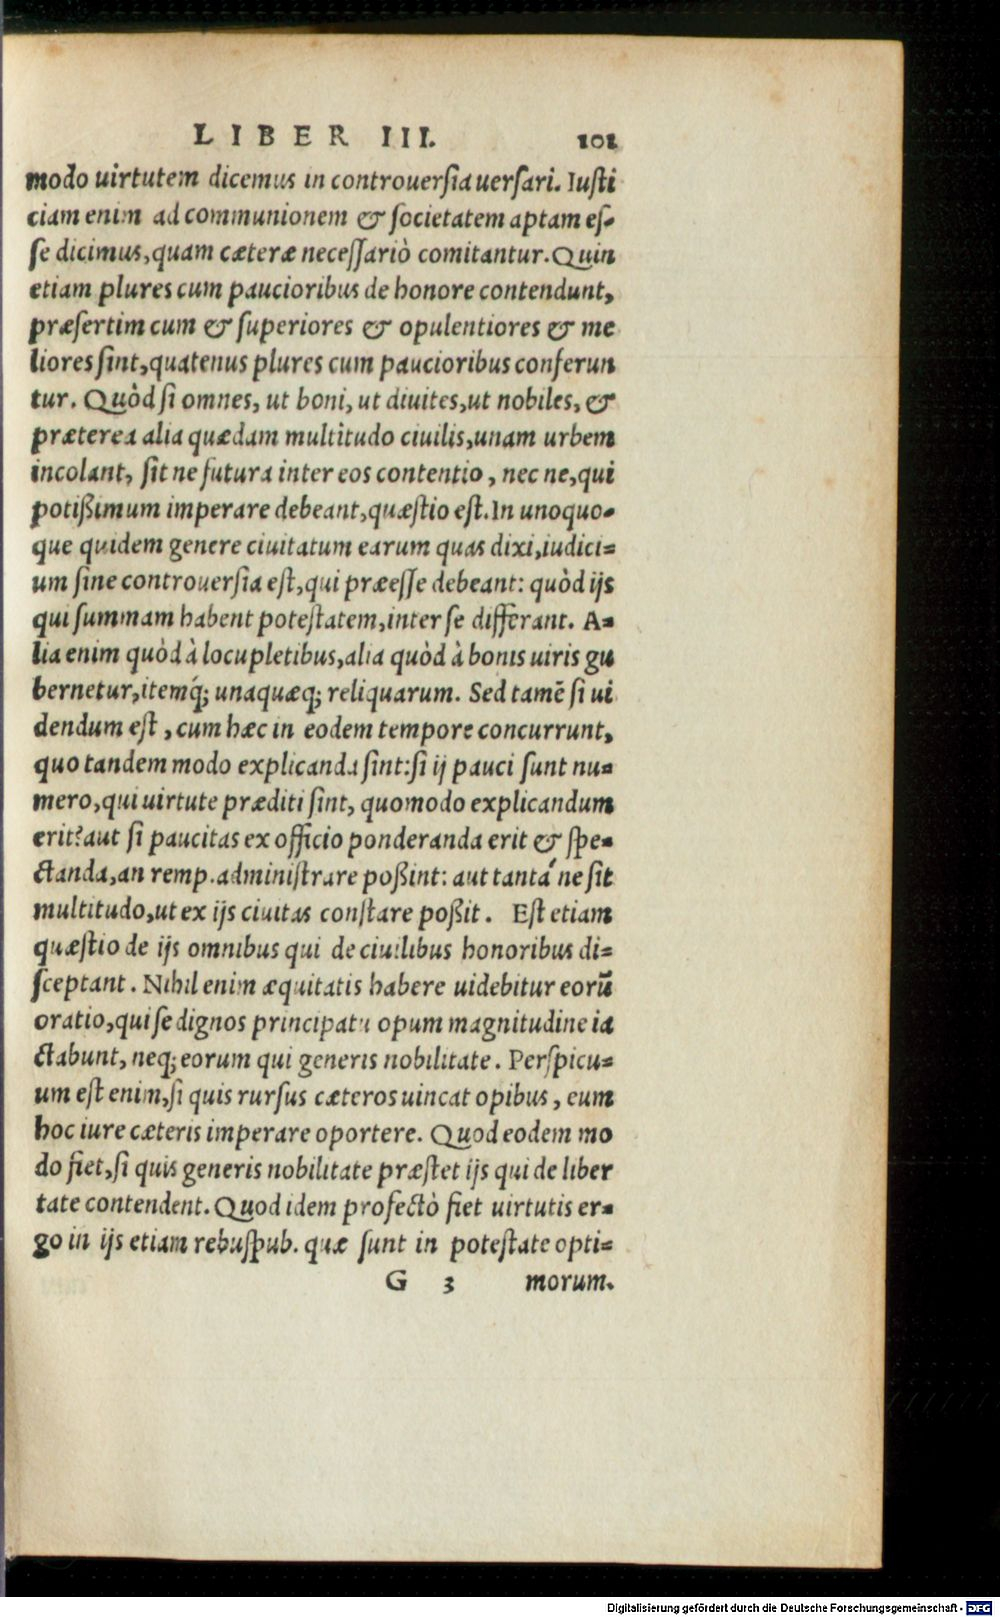 LIBER III. 101
modo uirtutem dicemus in controuersia uersari. Iusti
ciam enim ad communionem & societatem aptam es-
se dicimus, quam cæteræ necessariò comitantur. Quin
etiam plures cum paucioribus de honore contendunt,
præsertim cum & superiores & opulentiores & me
liores sint, quatenus plures cum paucioribus conferun
tur. Quòd si omnes, ut boni, ut diuites, ut nobiles, &
præterea alia quædam multitudo ciuilis, unam urbem
incolant, sit ne futura inter eos contentio, nec ne, qui
potißimum imperare debeant, quæstio est. In unoquo-
que quidem genere ciuitatum earum quas dixi, iudici=
um sine controuersia est, qui præesse debeant: quòd ijs
qui summam habent potestatem, inter se differant. A=
lia enim quòd à locupletibus, alia quòd à bonis uiris gu
bernetur, itemq́; unaquæq; reliquarum. Sed tamē si ui
dendum est, cum hæc in eodem tempore concurrunt,
quo tandem modo explicanda sint: si ij pauci sunt nu=
mero, qui uirtute præditi sint, quomodo explicandum
erit? aut si paucitas ex officio ponderanda erit & spe=
ctanda, an remp. administrare poßint: aut tantá ne sit
multitudo, ut ex ijs ciuitas constare poßit. Est etiam
quæstio de ijs omnibus qui de ciuilibus honoribus di=
sceptant. Nihil enim æquitatis habere uidebitur eorū
oratio, qui se dignos principatu opum magnitudine ia
ctabunt, neq; eorum qui generis nobilitate. Perspicu=
um est enim, si quis rursus cæteros uincat opibus, eum
hoc iure cæteris imperare oportere. Quod eodem mo
do fiet, si quis generis nobilitate præstet ijs qui de liber
tate contendent. Quod idem profectò fiet uirtutis er=
go in ijs etiam rebuspub. quæ sunt in potestate opti=
G 3 morum.
Digitalisierung gefördert durch die Deutsche Forschungsgemeinschaft - DFG